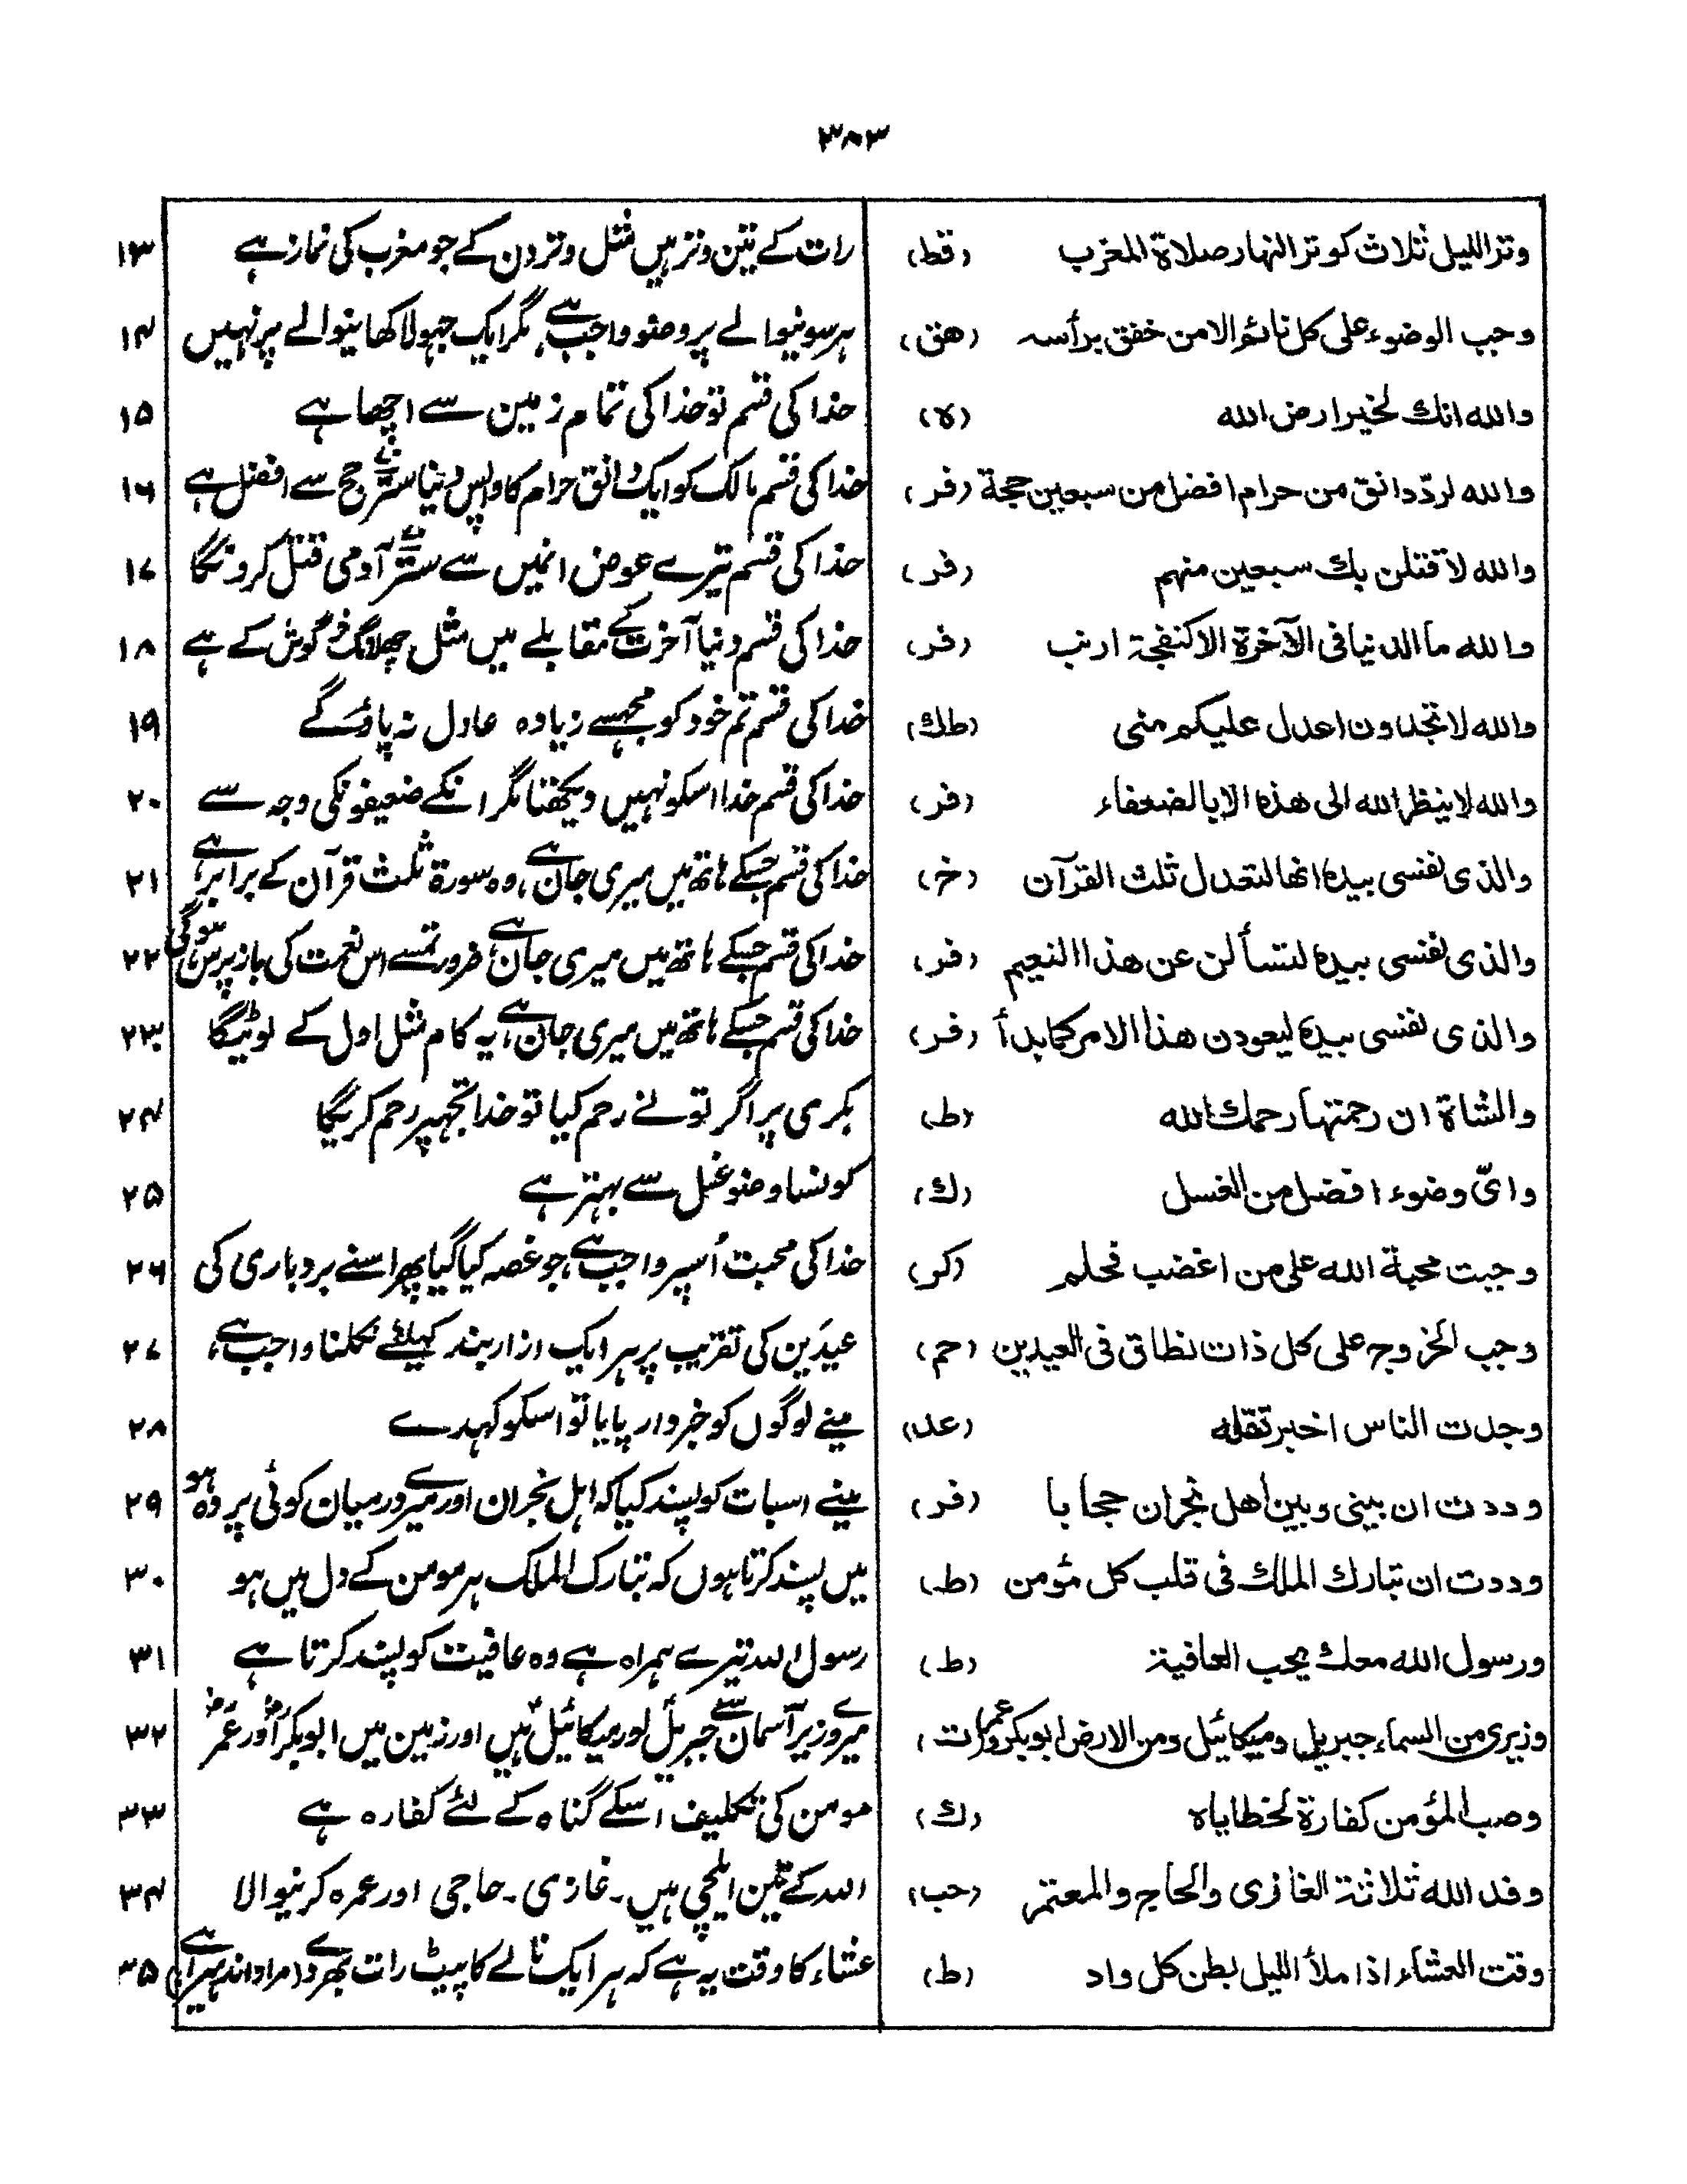 ۳۸۳
وتر الليل ثلاث كوتر النهار صلاة المغرب (قط) رات کے تین وتر ہیں مثل وتر دن کے جو مغرب کی نماز ہے ۱۳
وجب الوضوء على كل نائم الا من خفق برأسه (هق) ہر سونیوالے پر وضو واجب ہے، مگر ایک جہولا کھانیوالے پر نہیں ۱۴
والله انك لخير ارض الله (ه) خدا کی قسم تو خدا کی تمام زمین سے اچھا ہے ۱۵
والله لردّ دانق من حرام افضل من سبعين حجة (فر) خدا کی قسم مالک کو ایک دانق حرام کا واپس دینا ستر حج سے افضل ہے ۱۶
والله لا قتلن بك سبعين منهم (فر) خدا کی قسم تیرے عوض انمیں سے ستر آدمی قتل کرونگا ۱۷
والله ما الدنيا فى الآخرة الا كنفجة ارنب (فر) خدا کی قسم دنیا آخرت کے مقابلے میں مثل چھلانگ خرگوش کے ہے ۱۸
والله لا تجدون اعدل عليكم منى (طك) خدا کی قسم تم خود کو مجہسے زیادہ عادل نہ پاؤگے ۱۹
والله لا ينظر الله الى هذه الا بالضعفاء (فر) خدا کی قسم خدا اسکو نہیں دیکھتا مگر انکے ضعیفونکی وجہ سے ۲۰
والذى نفسى بيده انها لتعدل ثلث القرآن (خ) خدا کی قسم جسکے ہاتھ میں میری جان ہے، وہ سورۃ ثلث قرآن کے برابر ہے ۲۱
والذى نفسى بيده لتسألن عن هذا النعيم (فر) خدا کی قسم جسکے ہاتھ میں میری جان ہے، ضرور تمسے اس نعمت کی باز پرس ہوگی ۲۲
والذى نفسى بيده ليعودن هذا الامر كما بدأ (فر) خدا کی قسم جسکے ہاتھ میں میری جان ہے، یہ کام مثل اول کے لوٹیگا ۲۳
والشاة ان رحمتها رحمك الله (ط) بکری پر اگر تونے رحم کیا تو خدا تجہپر رحم کریگا ۲۴
واىّ وضوء افضل من الغسل (ك) کونسا وضو غسل سے بہتر ہے ۲۵
وجبت محبة الله على من اغضب فحلم (كر) خدا کی محبت اُسپر واجب ہے، جو غصہ کیا گیا پھر اسنے بردباری کی ۲۶
وجب الخروج على كل ذات نطاق فى العيدين (حم) عیدَین کی تقریب پر ہر ایک ازاربند کیلئے نکلنا واجب ہے، ۲۷
وجدت الناس اخبر تقله (عد) مینے لوگوں کو خبردار پایا تو اسکو کہدے ۲۸
وددت ان بينى وبين اهل نجران حجابا (فر) مینے اسبات کو پسند کیا کہ اہل نجران اور میرے درمیان کوئی پردہ ہو ۲۹
وددت ان تبارك الملك فى قلب كل مؤمن (ط) میں پسند کرتا ہوں کہ تبارک الملک ہر مومن کے دل میں ہو ۳۰
ورسول الله معك يحب العافية (ط) رسول اللہ تیرے ہمراہ ہے وہ عافیت کو پسند کرتا ہے ۳۱
وزيرى من السماء جبريل وميكائيل ومن الارض ابو بكر وعمر (ت) میرے وزیر آسمان سے جبریل اور میکائیل ہیں اور زمین میں ابوبکر اور عمر ۳۲
وصب المؤمن كفارة لخطاياه (ك) مومن کی تکلیف اسکے گناہ کے لئے کفارہ ہے ۳۳
وفد الله ثلاثة الغازى والحاج والمعتمر (حب) اللہ کے تین ایلچی ہیں ۔ غازی ۔ حاجی اور عمرہ کرنیوالا ۳۴
وقت العشاء اذا ملأ الليل بطن كل واد (ط) عشاء کا وقت یہ ہے کہ ہر ایک نالے کا پیٹ رات بھردے (مراد اندہیرا ہے) ۳۵